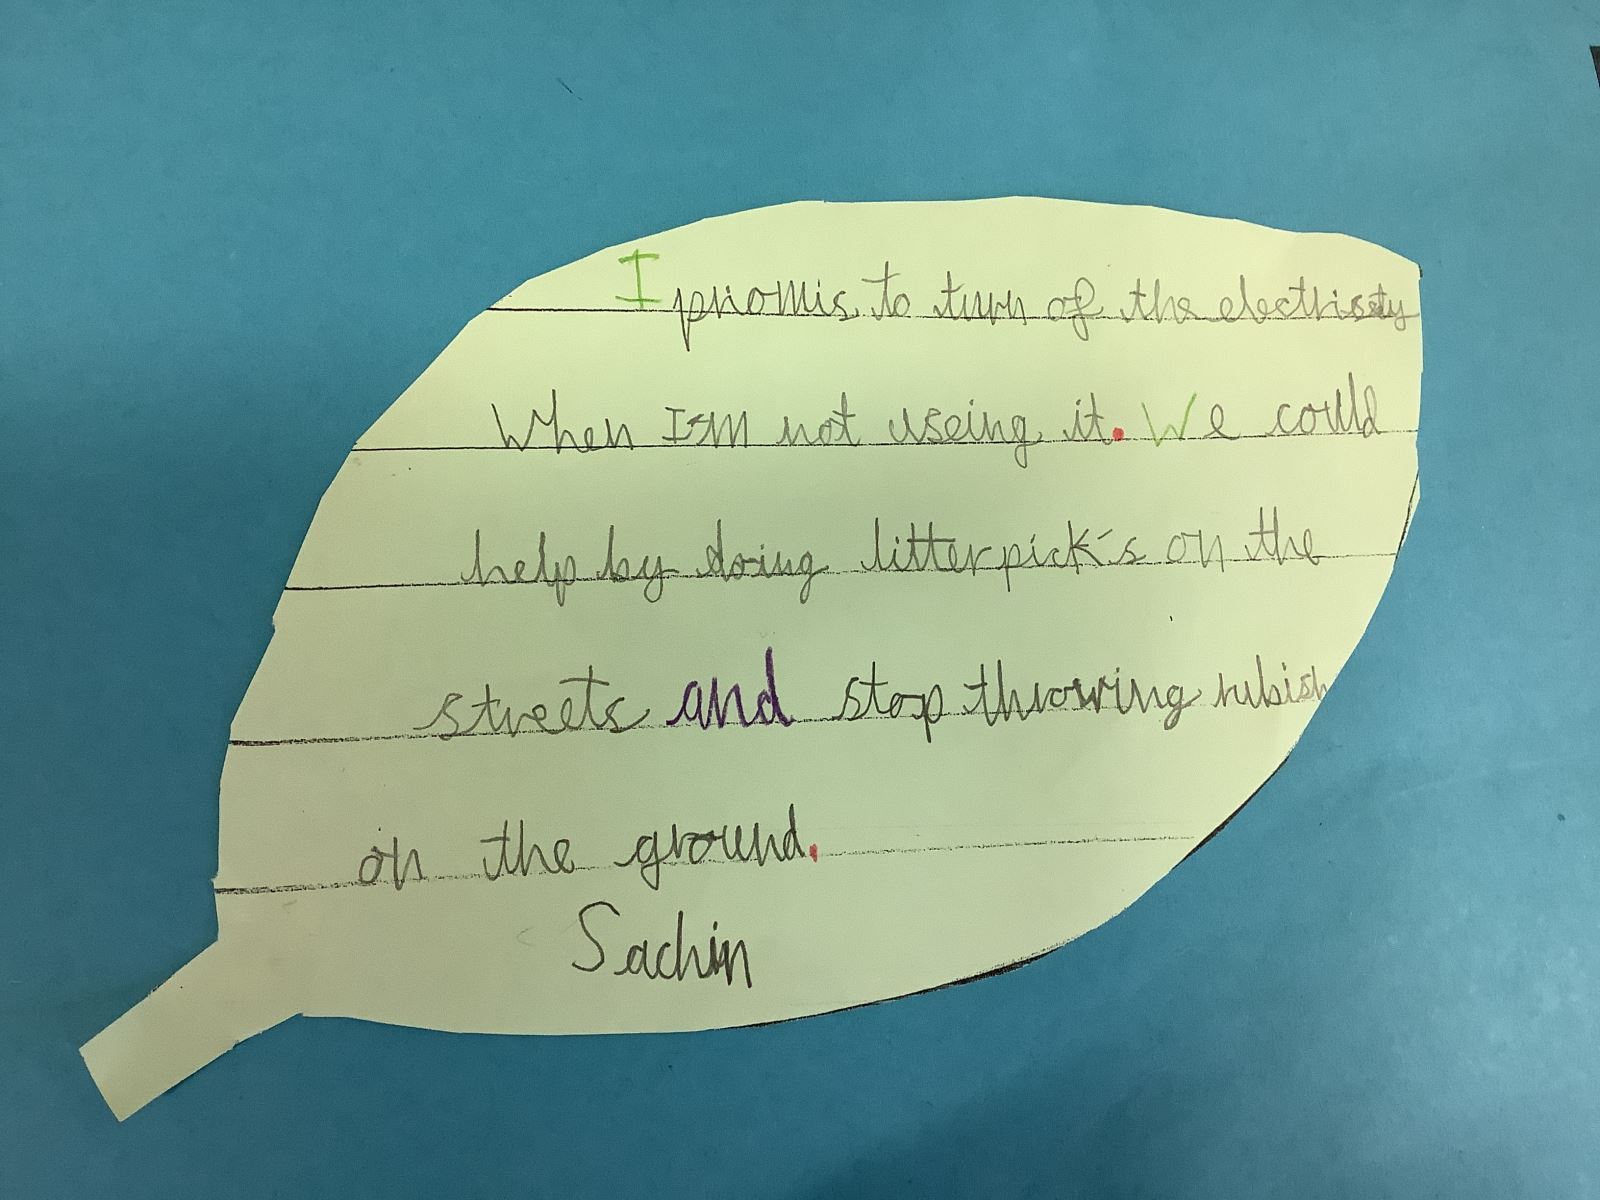 I promis to turn of the electrisety
When I'm not useing it. We could
help by doing litter pick's on the
streets and stop throwing rubish
on the ground.
Sachin